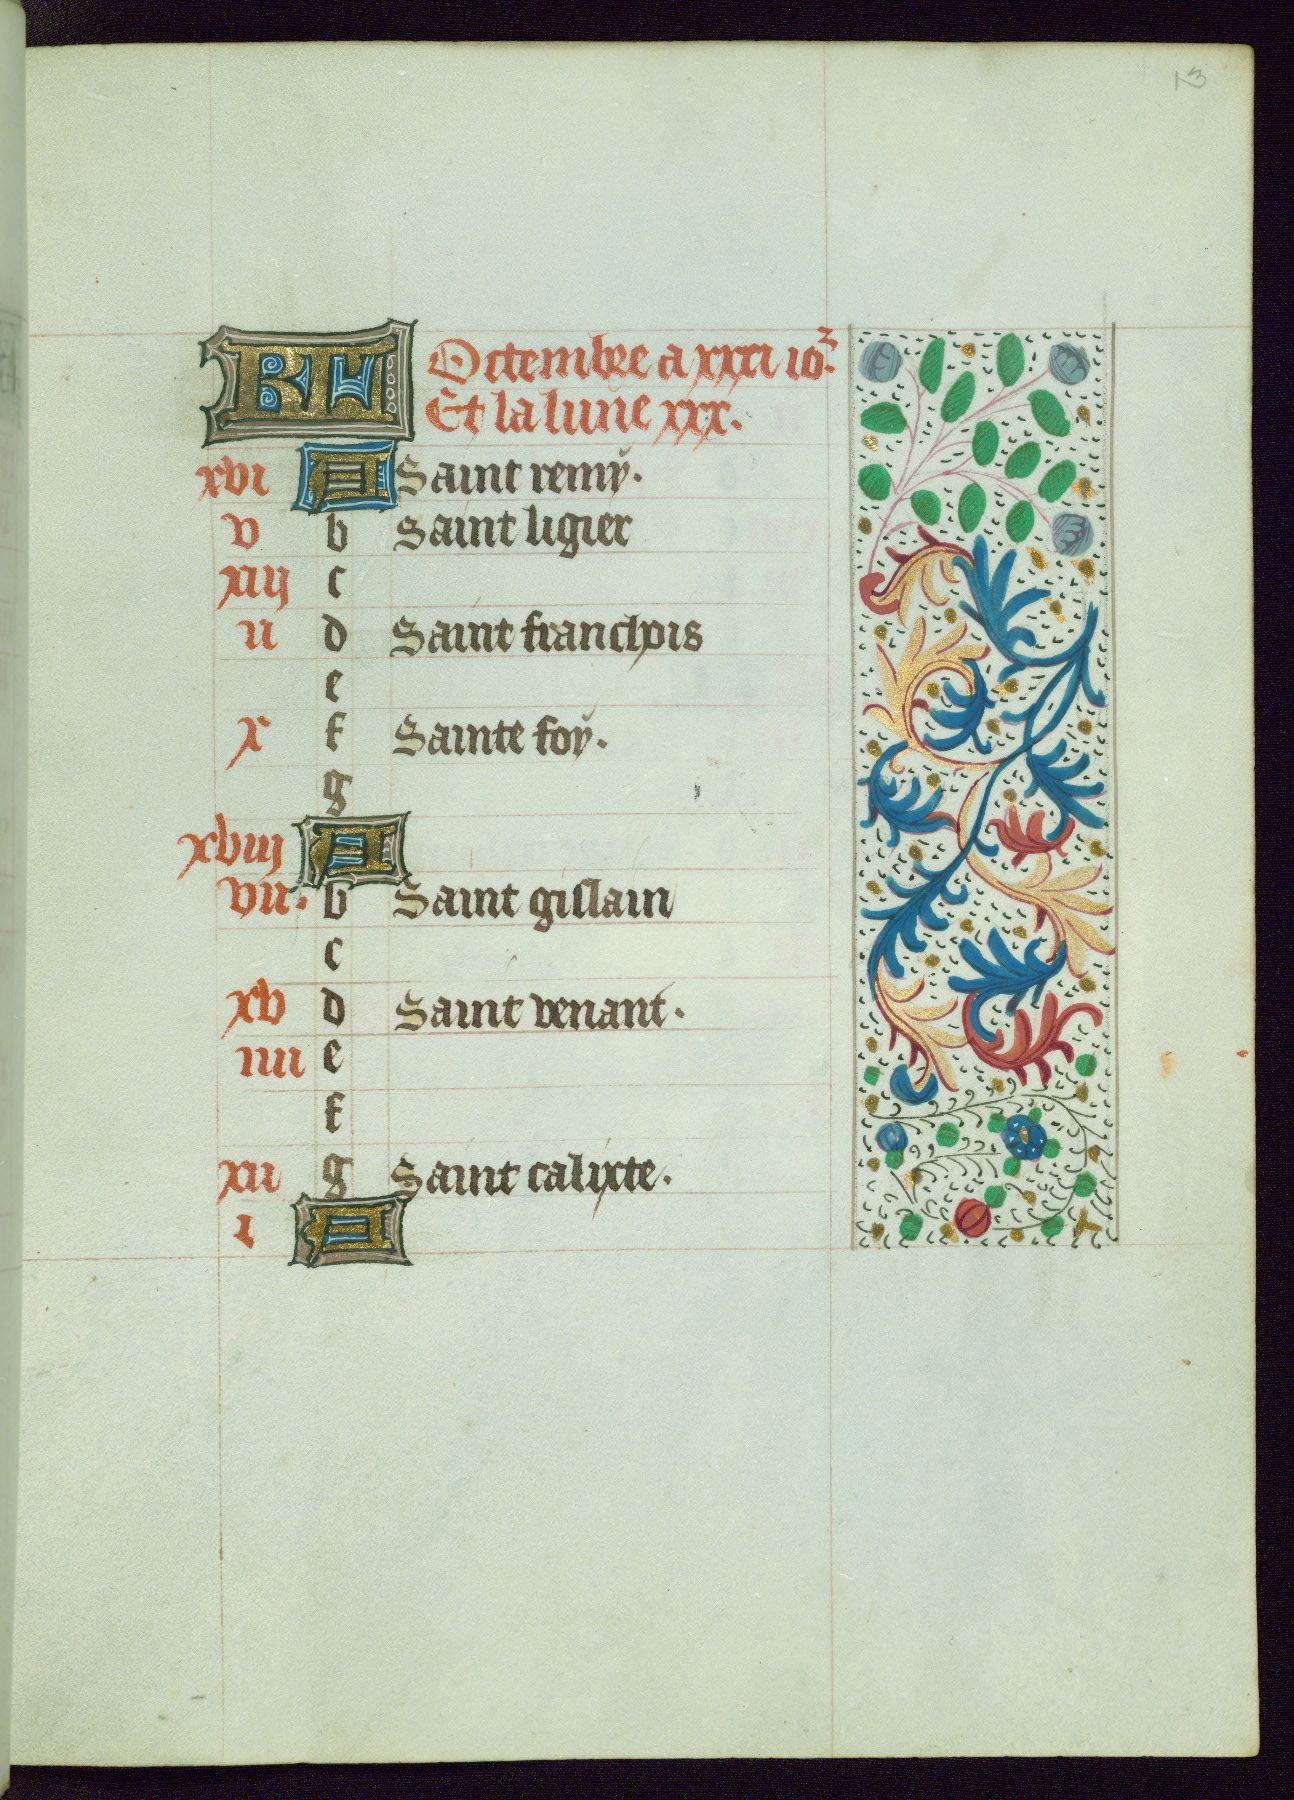 13
KL Octembre a xxxi ioz.
Et la lune xxx.
xvi A Saint remy.
v b Saint ligier
xiij c
ii d Saint franchois
e
x f Sainte foy.
g
xviij A
vii. b Saint gislain
c
xv d Saint venant.
iiii e
f
xii g Saint calixte.
i A